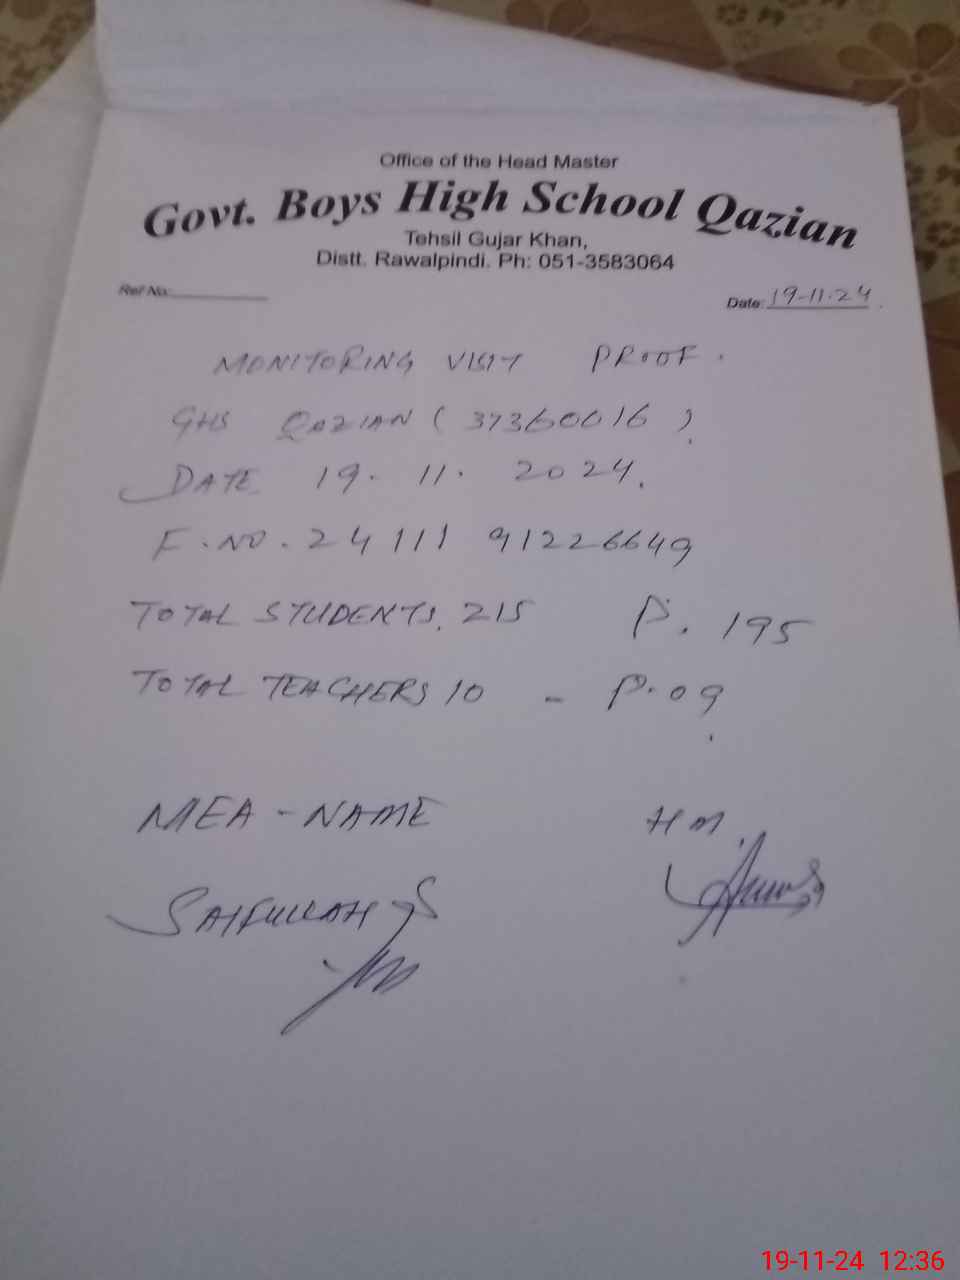 Office of the Head Master
Govt. Boys High School Qazian
Tehsil Gujar Khan,
Distt. Rawalpindi. Ph: 051-3583064
Ref No:
Date: 19-11-24
MONITORING VISIT PROOF.
GHS QAZIAN (37360016)
DATE 19.11.2024.
F.NO. 24111 91226649
TOTAL STUDENTS. 215 P. 195
TOTAL TEACHERS 10 - P.09
MEA-NAME HM
SAIFULLAH
19-11-24 12:36